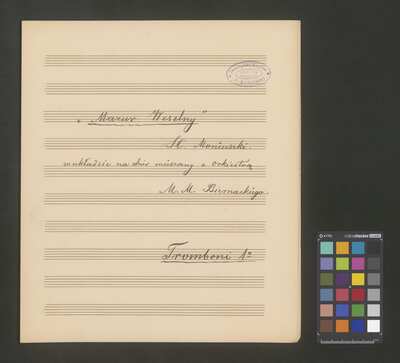 „Mazur Weselny"
St. Moniuszki
w układzie na chór mieszany z orkiestrą
M. M. Biernackiego.
Tromboni 1º